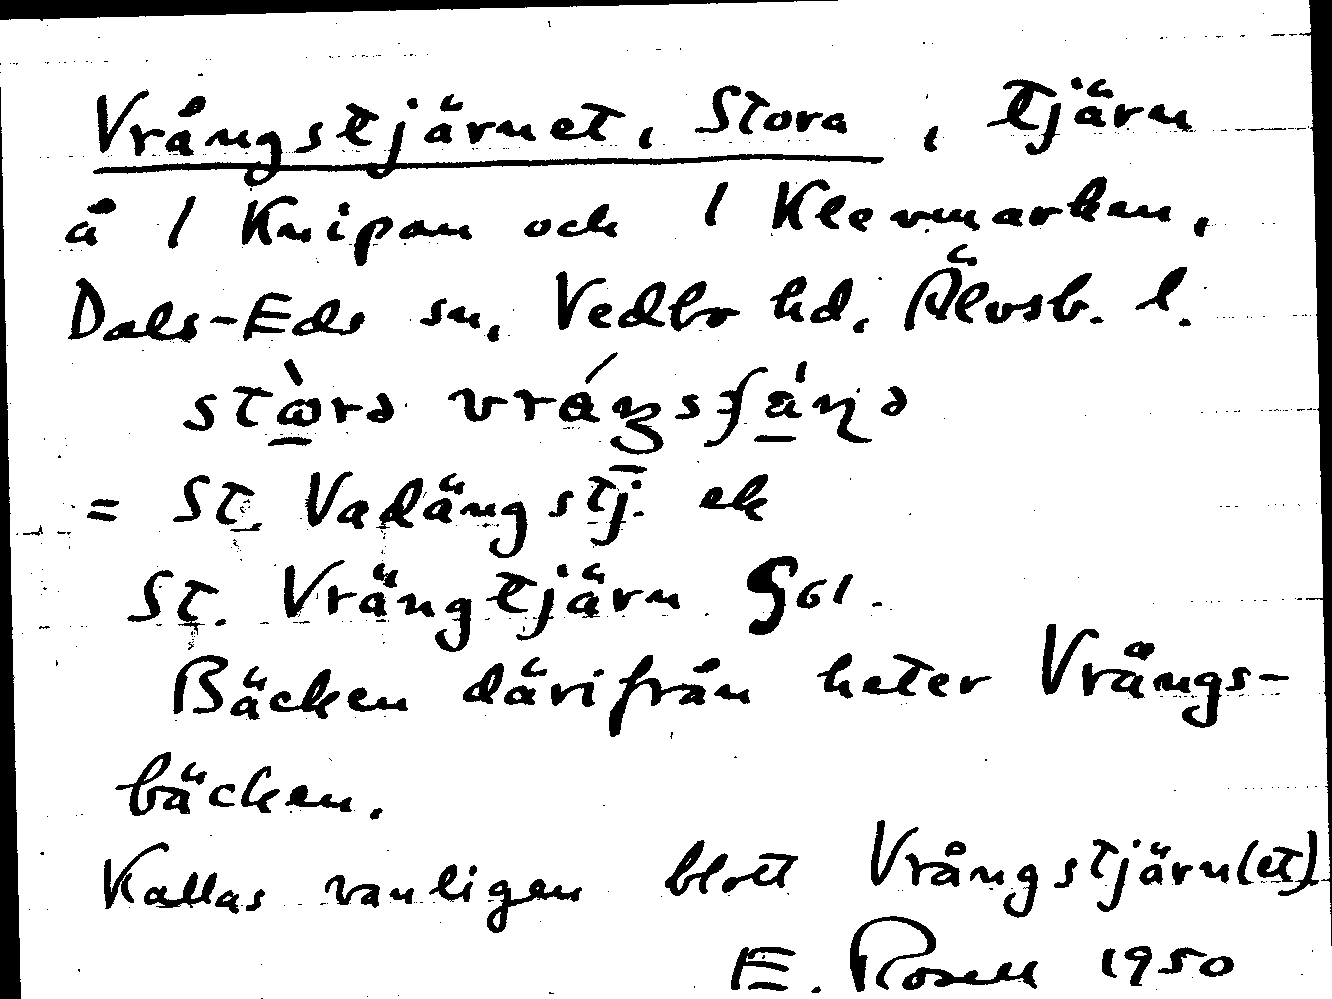 Vrångstjärnet, Stora, tjärn
å 1 Knipan och 1 Klevmarken,
Dals-Eds sn, Vedbo hd, Älvsb. l.
= St. Vadängstj. ek
St. Vrängtjärn G 61.
Bäcken därifrån heter Vrångs-
bäcken.
Kallas vanligen blott Vrångstjärn(et)
E. Rosell 1950